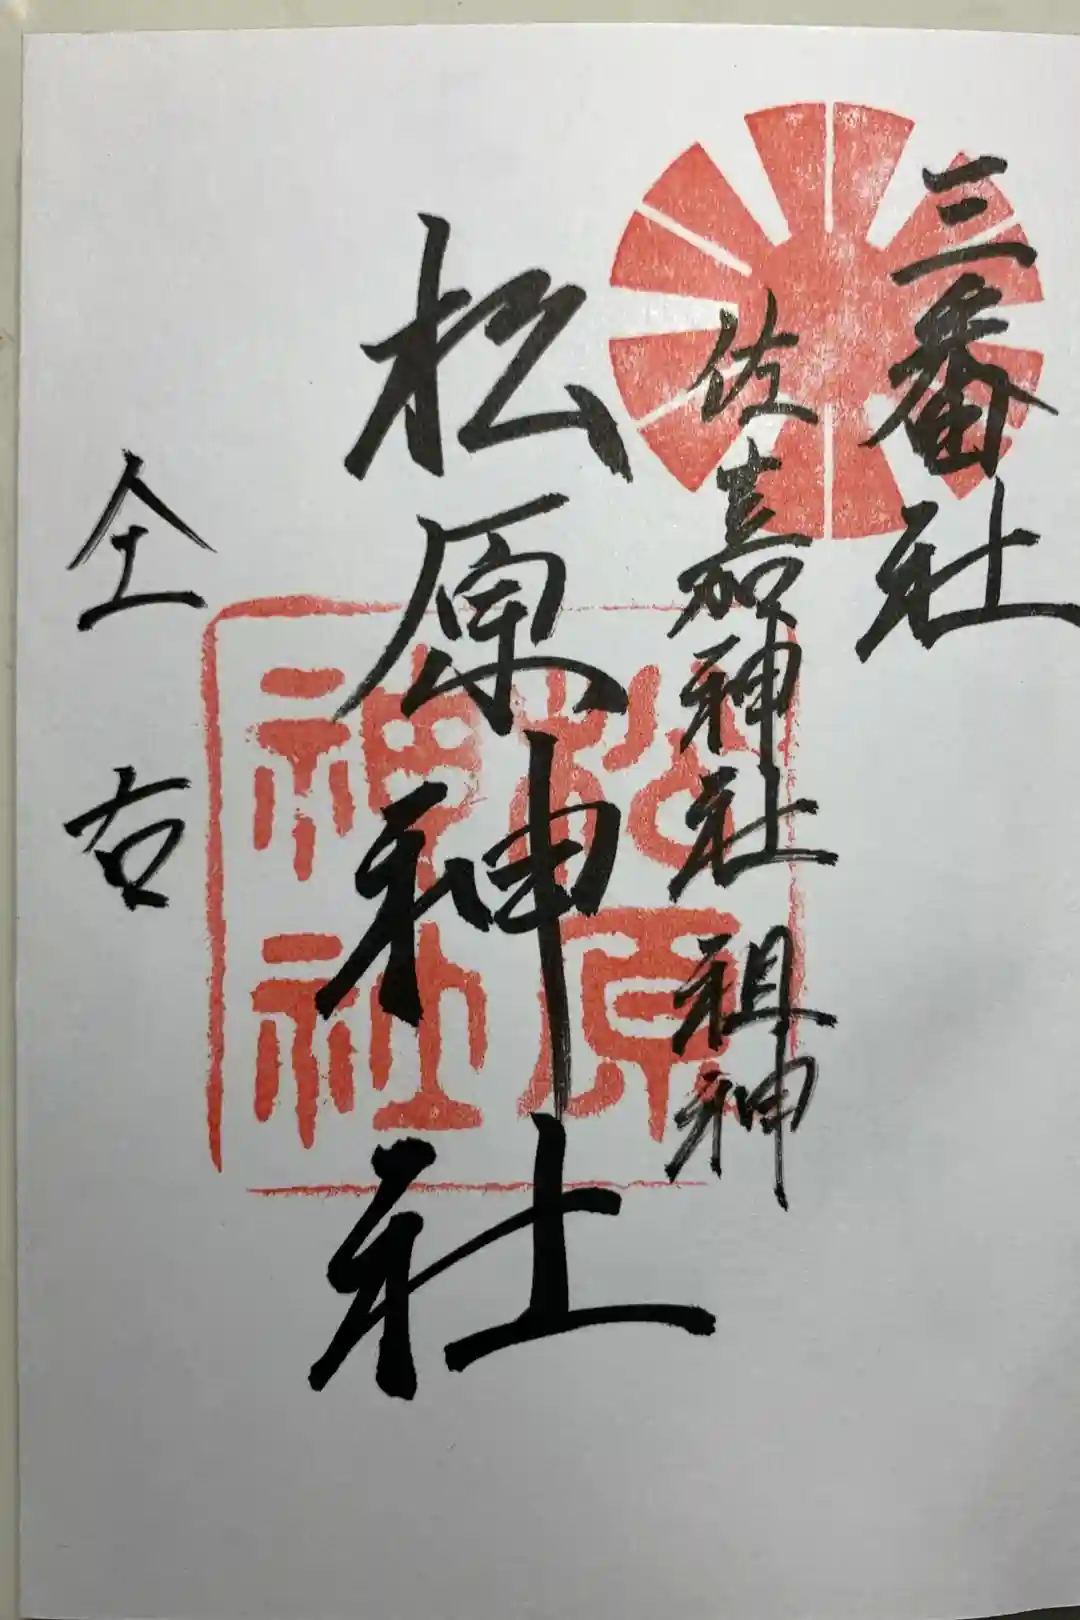 三番社
佐嘉神社 祖神
松原神社
仝 右
松原神社